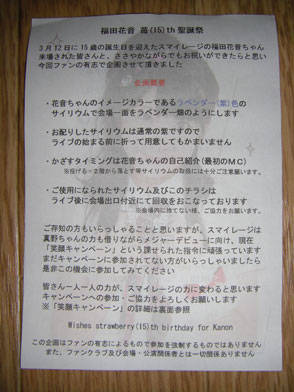 福田花音 苺(15)th 聖誕祭
3月12日に15歳の誕生日を迎えたスマイレージの福田花音ちゃん
来場された皆さんと、ささやかながらでもお祝いができたらと思い
今回ファンの有志で企画させて頂きました
企画概要
・花音ちゃんのイメージカラーであるラベンダー(紫)色の
サイリウムで会場一面をラベンダー畑のようにします
・お配りしたサイリウムは通常の紫ですので
ライブの始まる前に折って用意してもかまいません
・かざすタイミングは花音ちゃんの自己紹介(最初のMC)
※投げる・2階から落とす等サイリウムの取扱には十分ご注意願います。
・ご使用になられたサイリウム及びこのチラシは
ライブ後に会場出口付近にて回収をおこなっております
※会場内に捨てない様、ご協力をお願いします。
ご存知の方もいらっしゃることと思いますが、スマイレージは
真野ちゃんの力も借りながらメジャーデビューに向け、現在
「笑顔キャンペーン」という課せられた指令に頑張っています
まだキャンペーンに参加されてない方がいらっしゃいましたら
是非この機会に参加してみてください
皆さん一人一人の力が、スマイレージの力に変わると思います
キャンペーンへの参加・ご協力をよろしくお願いします
※「笑顔キャンペーン」の詳細は裏面参照
Wishes strawberry(15)th birthday for Kanon
この企画はファンの有志によるもので参加を強制するものではありません
また、ファンクラブ及び会場・公演関係者とは一切関係ありません